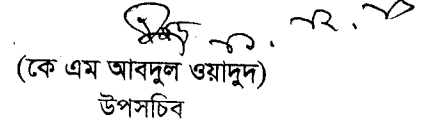 (কে এম আবদুল ওয়াদুদ)
উপসচিব